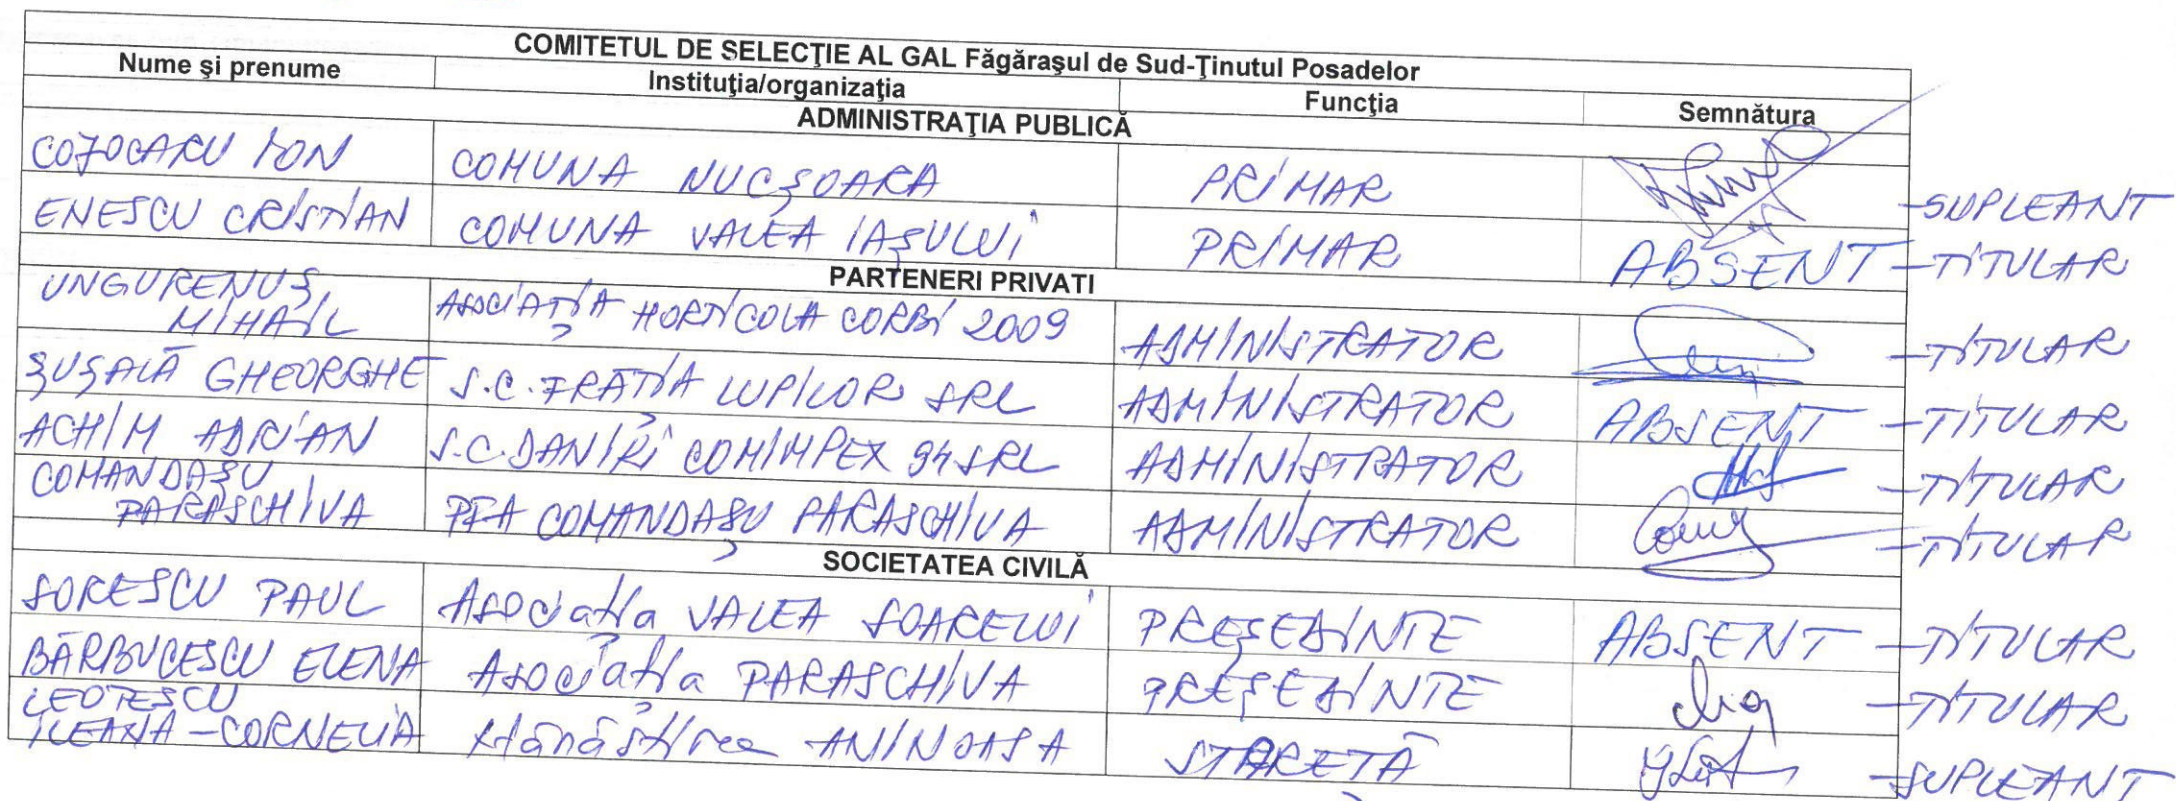 COMITETUL DE SELECŢIE AL GAL Făgăraşul de Sud-Ţinutul Posadelor
Nume şi prenume Instituţia/organizaţia Funcţia Semnătura
ADMINISTRAŢIA PUBLICĂ
COJOCARU ION COMUNA NUCŞOARA PRIMAR -SUPLEANT
ENESCU CRISTIAN COMUNA VALEA IAŞULUI PRIMAR ABSENT -TITULAR
PARTENERI PRIVATI
UNGURENUŞ
MIHAIL ASOCIAŢIA HORTICOLA CORBI 2009 ADMINISTRATOR -TITULAR
ŞUŞALĂ GHEORGHE S.C. FRAŢIA LUPILOR SRL ADMINISTRATOR ABSENT -TITULAR
ACHIM ADRIAN S.C. DANIRI COMIMPEX 94 SRL ADMINISTRATOR -TITULAR
COMANDAŞU
PARASCHIVA PFA COMANDAŞU PARASCHIVA ADMINISTRATOR -TITULAR
SOCIETATEA CIVILĂ
SORESCU PAUL Asociaţia VALEA SOARELUI PREŞEDINTE ABSENT -TITULAR
BĂRBUCESCU ELENA Asociaţia PARASCHIVA PREŞEDINTE -TITULAR
LEOTESCU
ILEANA-CORNELIA Mănăstirea ANINOASA STAREŢĂ -SUPLEANT